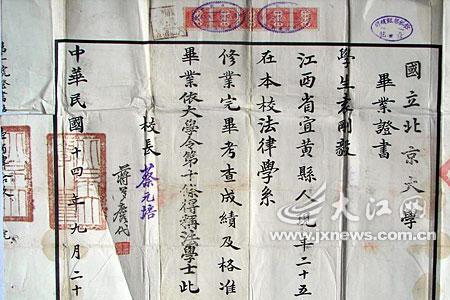 國立北京大學
畢業證書
學生袁剛毅
江西省宜黃縣人現年二十五
在本校法律學系
修業完畢考查成績及格准
畢業依大學令第十條得稱法學士此
校長 蔡元培
蔣夢麐代
中華民國十四年九月二十
大江网
www.jxnews.com.cn